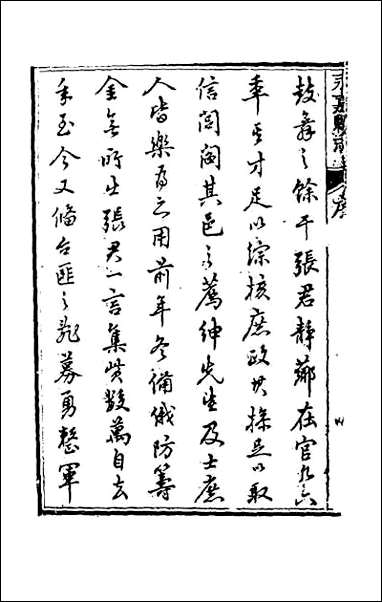 永嘉縣志 序
鼓舞之餘干張君靜薌在官凡六
年其才足以綜核庶政其操足以取
信閭閻其邑之薦紳先生及士庶
人皆樂為之用前年冬備俄防籌
金無所出張君一言集貲數萬自去
年至今又備台匪之亂募勇整軍